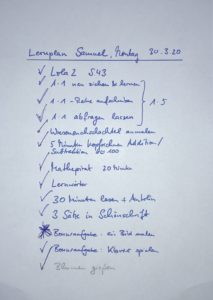 Lernplan Samuel, Montag 30.3.20
✓ Lola 2 S.43
✓ 1·1 neu ziehen & lernen
✓ 1·1-Reihe aufschreiben
✓ 1·1 abfragen lassen
1·5
✓ anmalen
✓ 5 Minuten Kopfrechnen Addition/
Subtraktion 100
✓ Mathepirat 20 Minuten
✓ Lernwörter
✓ 30 Minuten lesen + Antolin
✓ 3 Sätze in Schönschrift
Bonusaufgabe: ein Bild malen
✓ Bonusaufgabe: Klavier spielen
✓ Blumen gießen